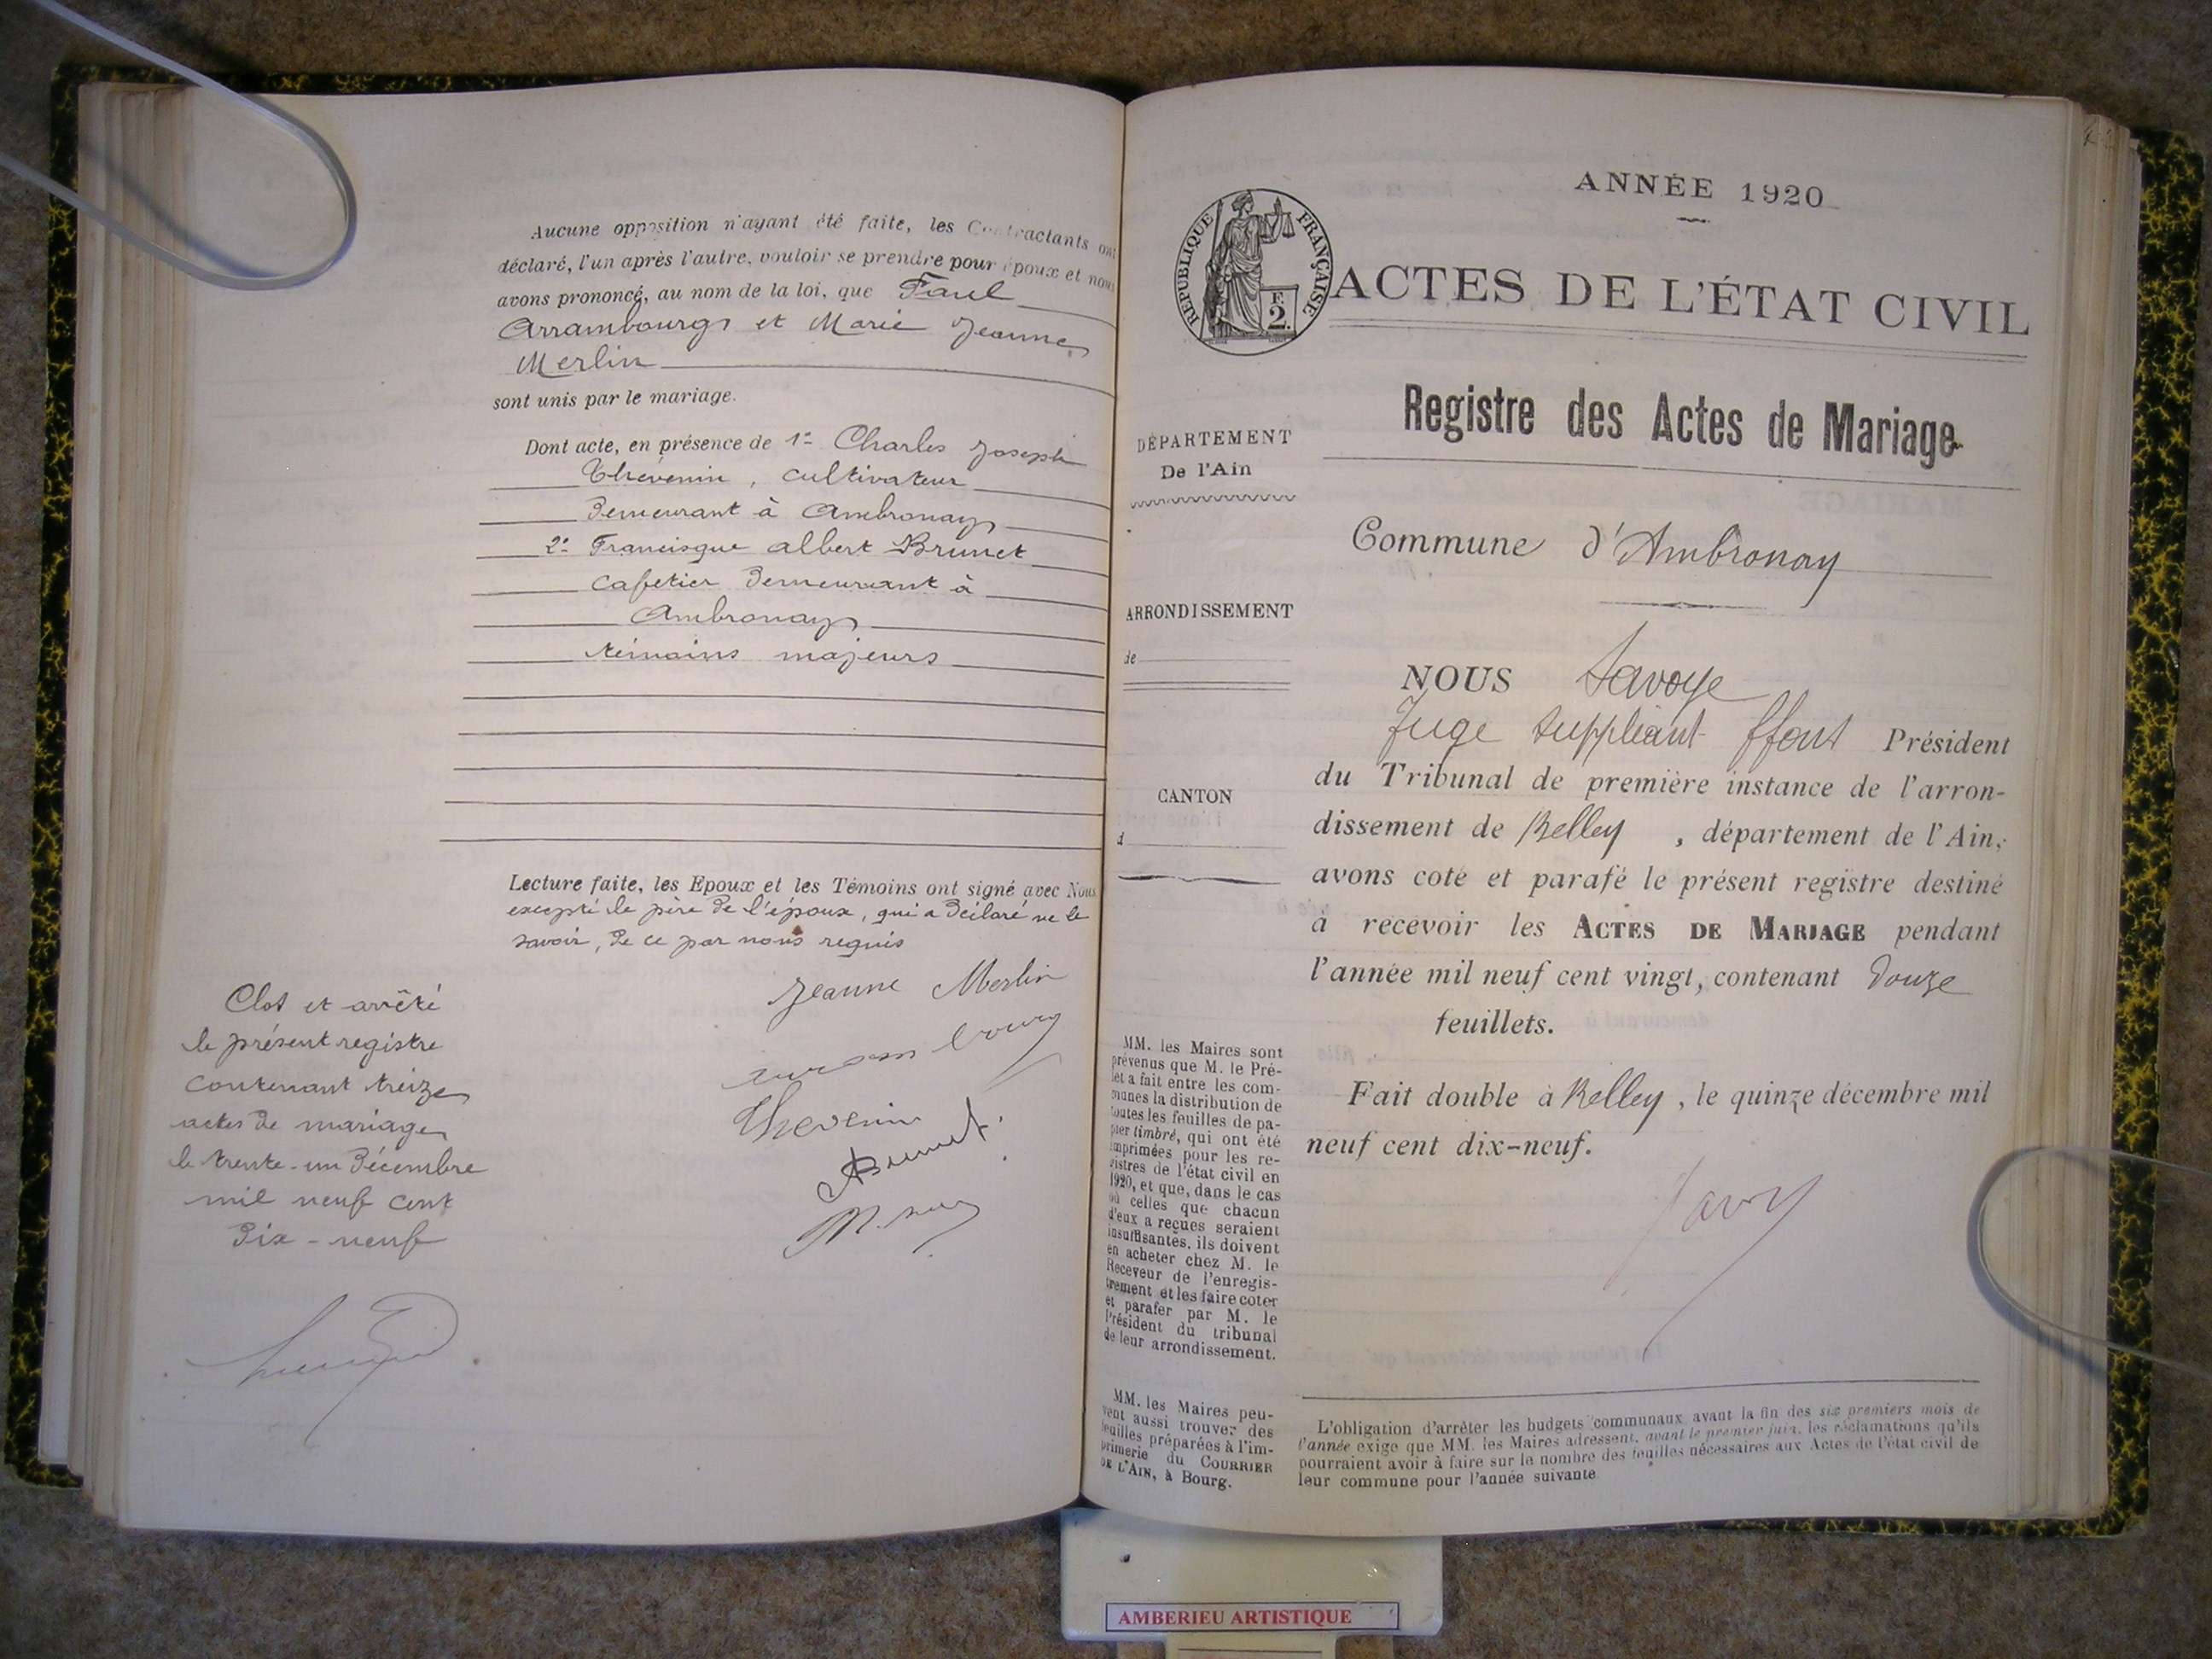 Aucune opposition n'ayant été faite, les Contractants ont
déclaré, l'un après l'autre, vouloir se prendre pour époux et nous
avons prononcé, au nom de la loi, que Paul
Arrambourg et Marie Jeanne
Merlin
sont unis par le mariage.
Dont acte, en présence de 1º Charles Joseph
Thévenin, cultivateur
demeurant à Ambronay
2º Francisque Albert Brunet
cafetier demeurant à
Ambronay
témoins majeurs
Lecture faite, les Epoux et les Témoins ont signé avec Nous
excepté le père de l'époux, qui a déclaré ne le
savoir, de ce par nous requis
Jeanne Merlin
Arrambourg
Thevenin
ABrunet.
Clos et arrêté
le présent registre
contenant treize
actes de mariage
le trente-un Décembre
mil neuf cent
Dix-neuf
ANNÉE 1920
REPUBLIQUE FRANÇAISE
F.
2.
ACTES DE L'ÉTAT CIVIL
Registre des Actes de Mariage
DÉPARTEMENT
De l'Ain
Commune d'Ambronay
ARRONDISSEMENT
de
CANTON
d
NOUS Savoye
Juge suppléant ffons Président
du Tribunal de première instance de l'arron-
dissement de Belley, département de l'Ain,
avons coté et parafé le présent registre destiné
à recevoir les ACTES DE MARIAGE pendant
l'année mil neuf cent vingt, contenant Douze
feuillets.
Fait double à Belley, le quinze décembre mil
neuf cent dix-neuf.
MM. les Maires sont
prévenus que M. le Pré-
fet a fait entre les com-
munes la distribution de
toutes les feuilles de pa-
pier timbré, qui ont été
imprimées pour les re-
gistres de l'état civil en
1920, et que, dans le cas
où celles que chacun
d'eux a reçues seraient
insuffisantes, ils doivent
en acheter chez M. le
Receveur de l'enregis-
trement et les faire coter
et parafer par M. le
Président du tribunal
de leur arrondissement.
MM. les Maires peu-
vent aussi trouver des
feuilles préparées à l'im-
primerie du COURRIER
DE L'AIN, à Bourg.
L'obligation d'arrêter les budgets communaux avant la fin des six premiers mois de
l'année exige que MM. les Maires adressent, avant le premier juin, les réclamations qu'ils
pourraient avoir à faire sur le nombre des feuilles nécessaires aux Actes de l'état civil de
leur commune pour l'année suivante.
AMBERIEU ARTISTIQUE